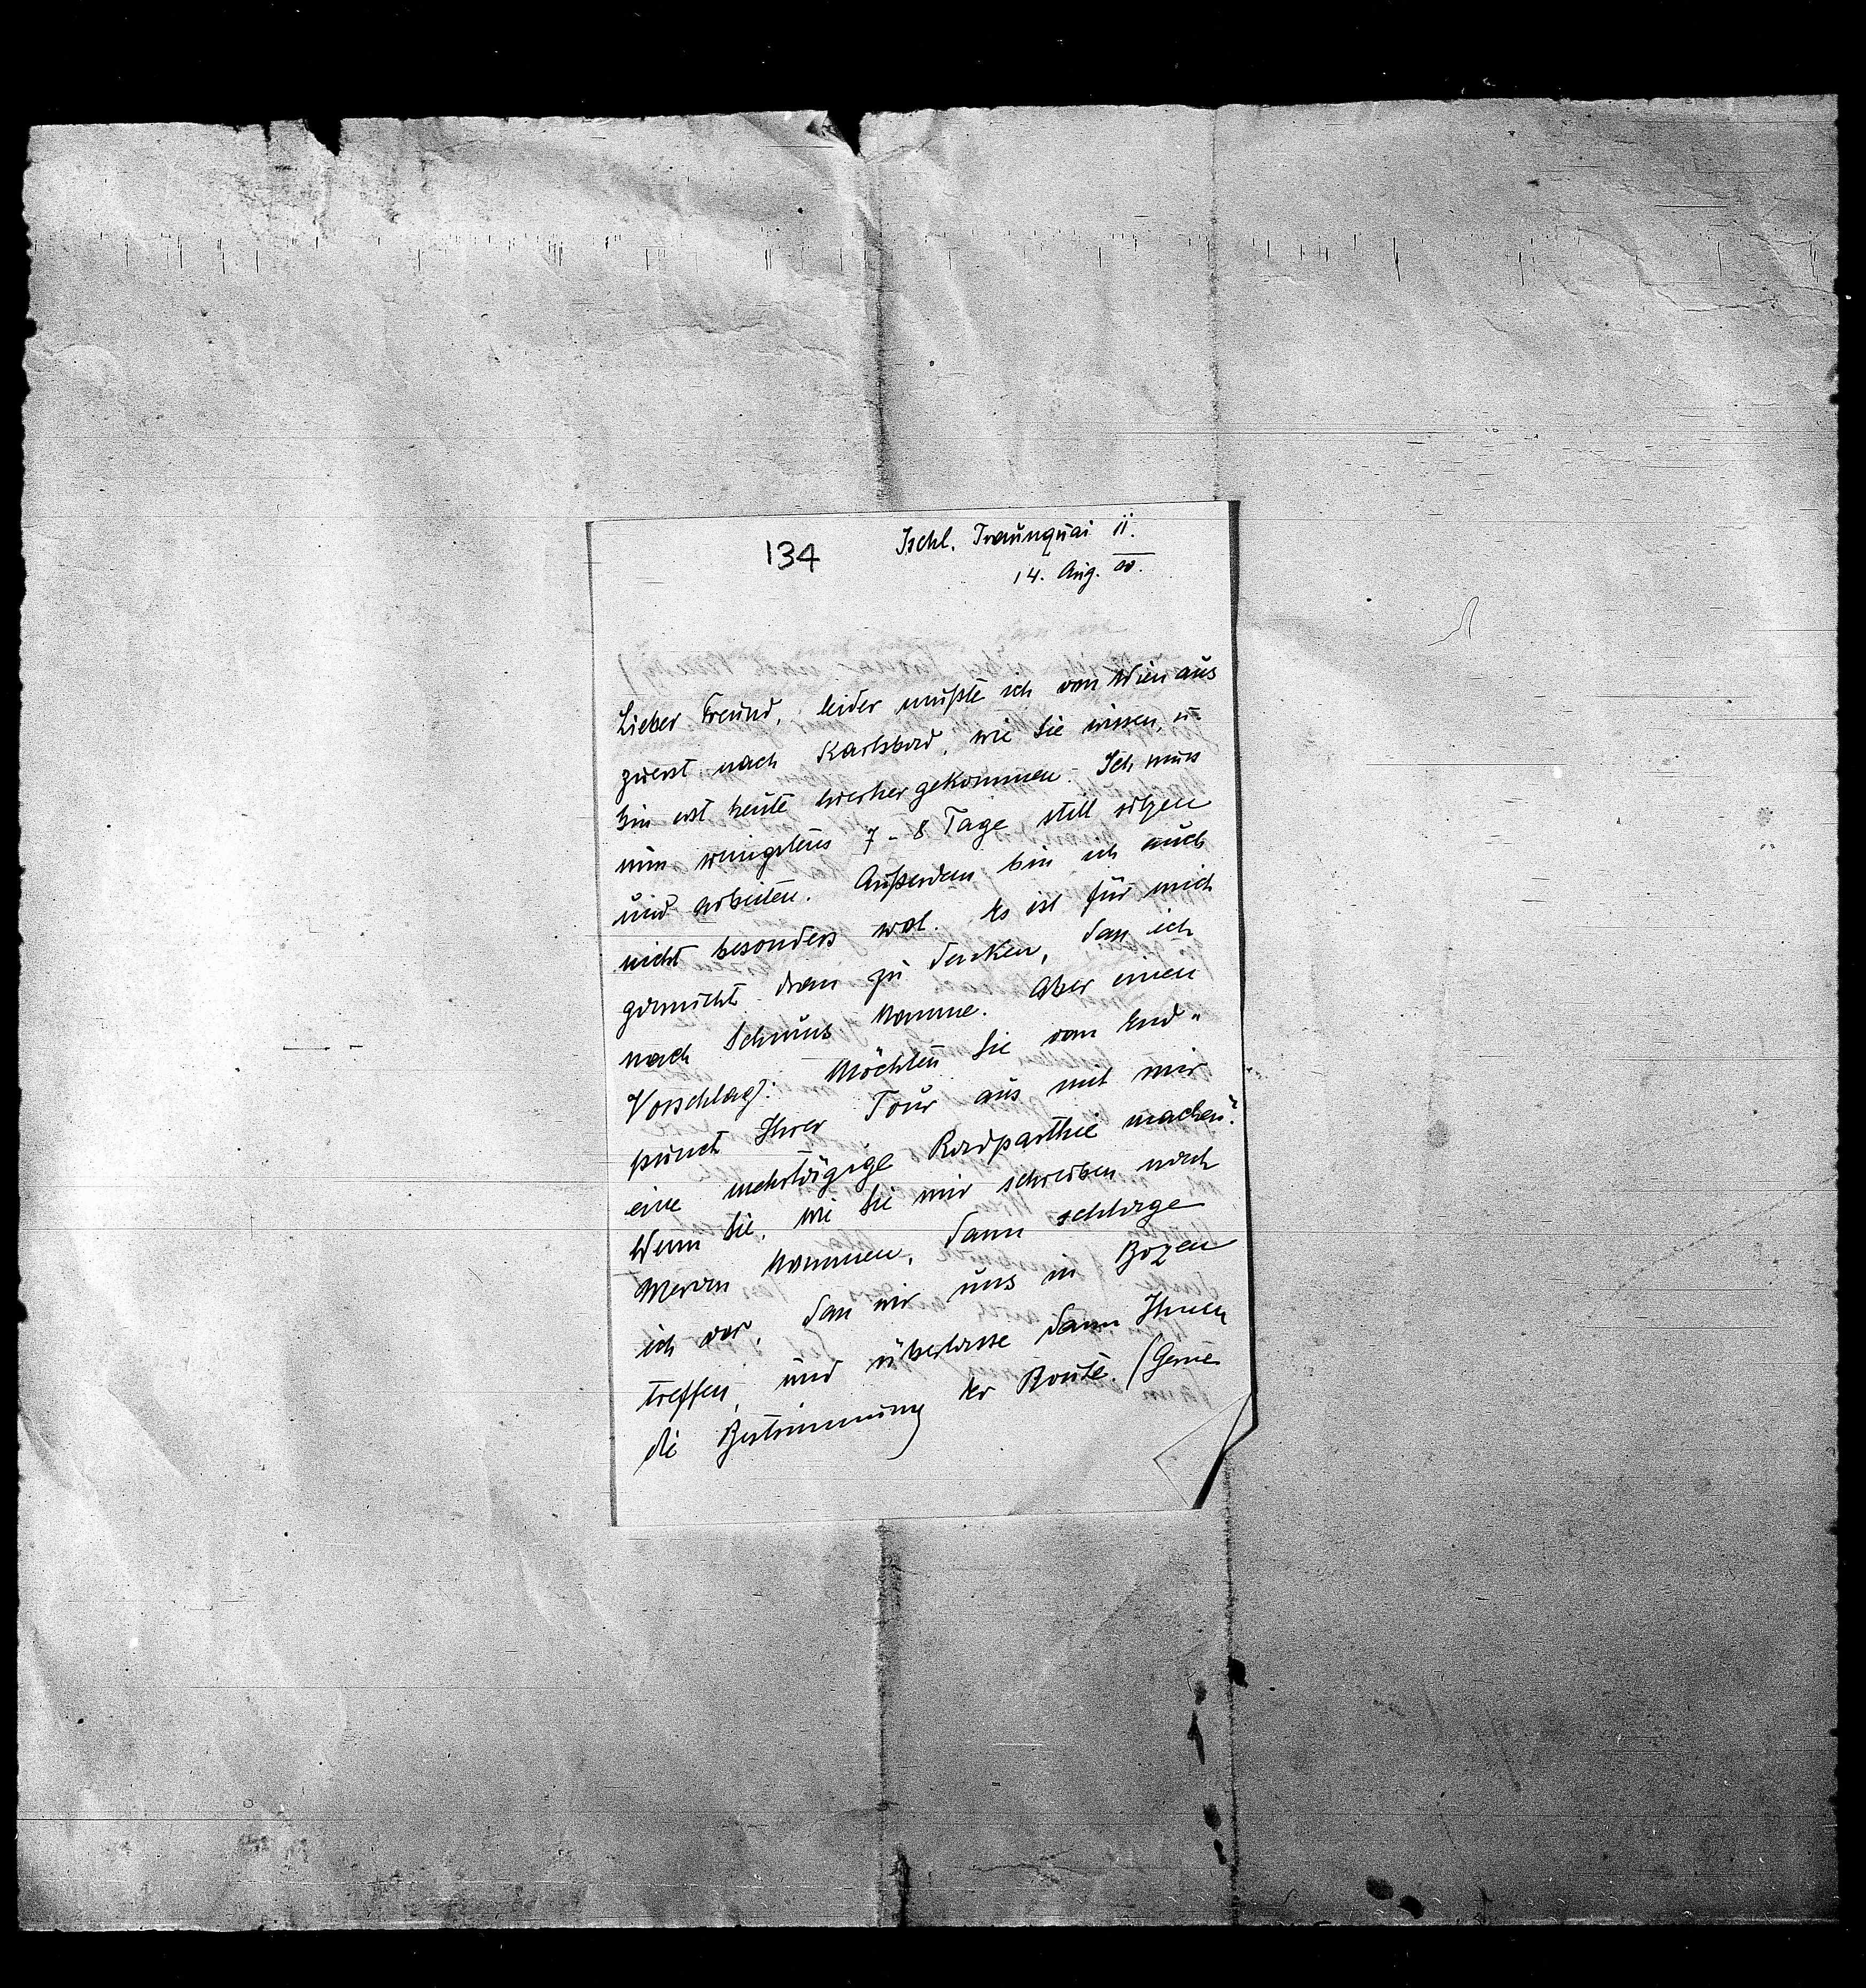 134
Ischl. Traunquai 11.
14. Aug. 00.
Lieber Freund, leider mußte ich von Wien aus
zuerst nach Karlsbad, wie Sie wissen, u.
bin erst heute hierher gekommen. Ich muss
nun wenigstens 7-8 Tage still sitzen
und arbeiten. Außerdem bin ich auch
nicht besonders wol. Es ist für mich
garnicht dran zu denken, dass ich
nach Schruns komme. Aber einen
Vorschlag: Möchten Sie vom End-
punct Ihrer Tour aus mit mir
eine mehrtägige Radparthie machen?
Wenn Sie, wie Sie mir schreiben nach
Meran kommen, dann schlage
ich vor, dass wir uns in Bozen
treffen, und überlasse dann Ihnen
die Bestimmung der Route. (Gerne